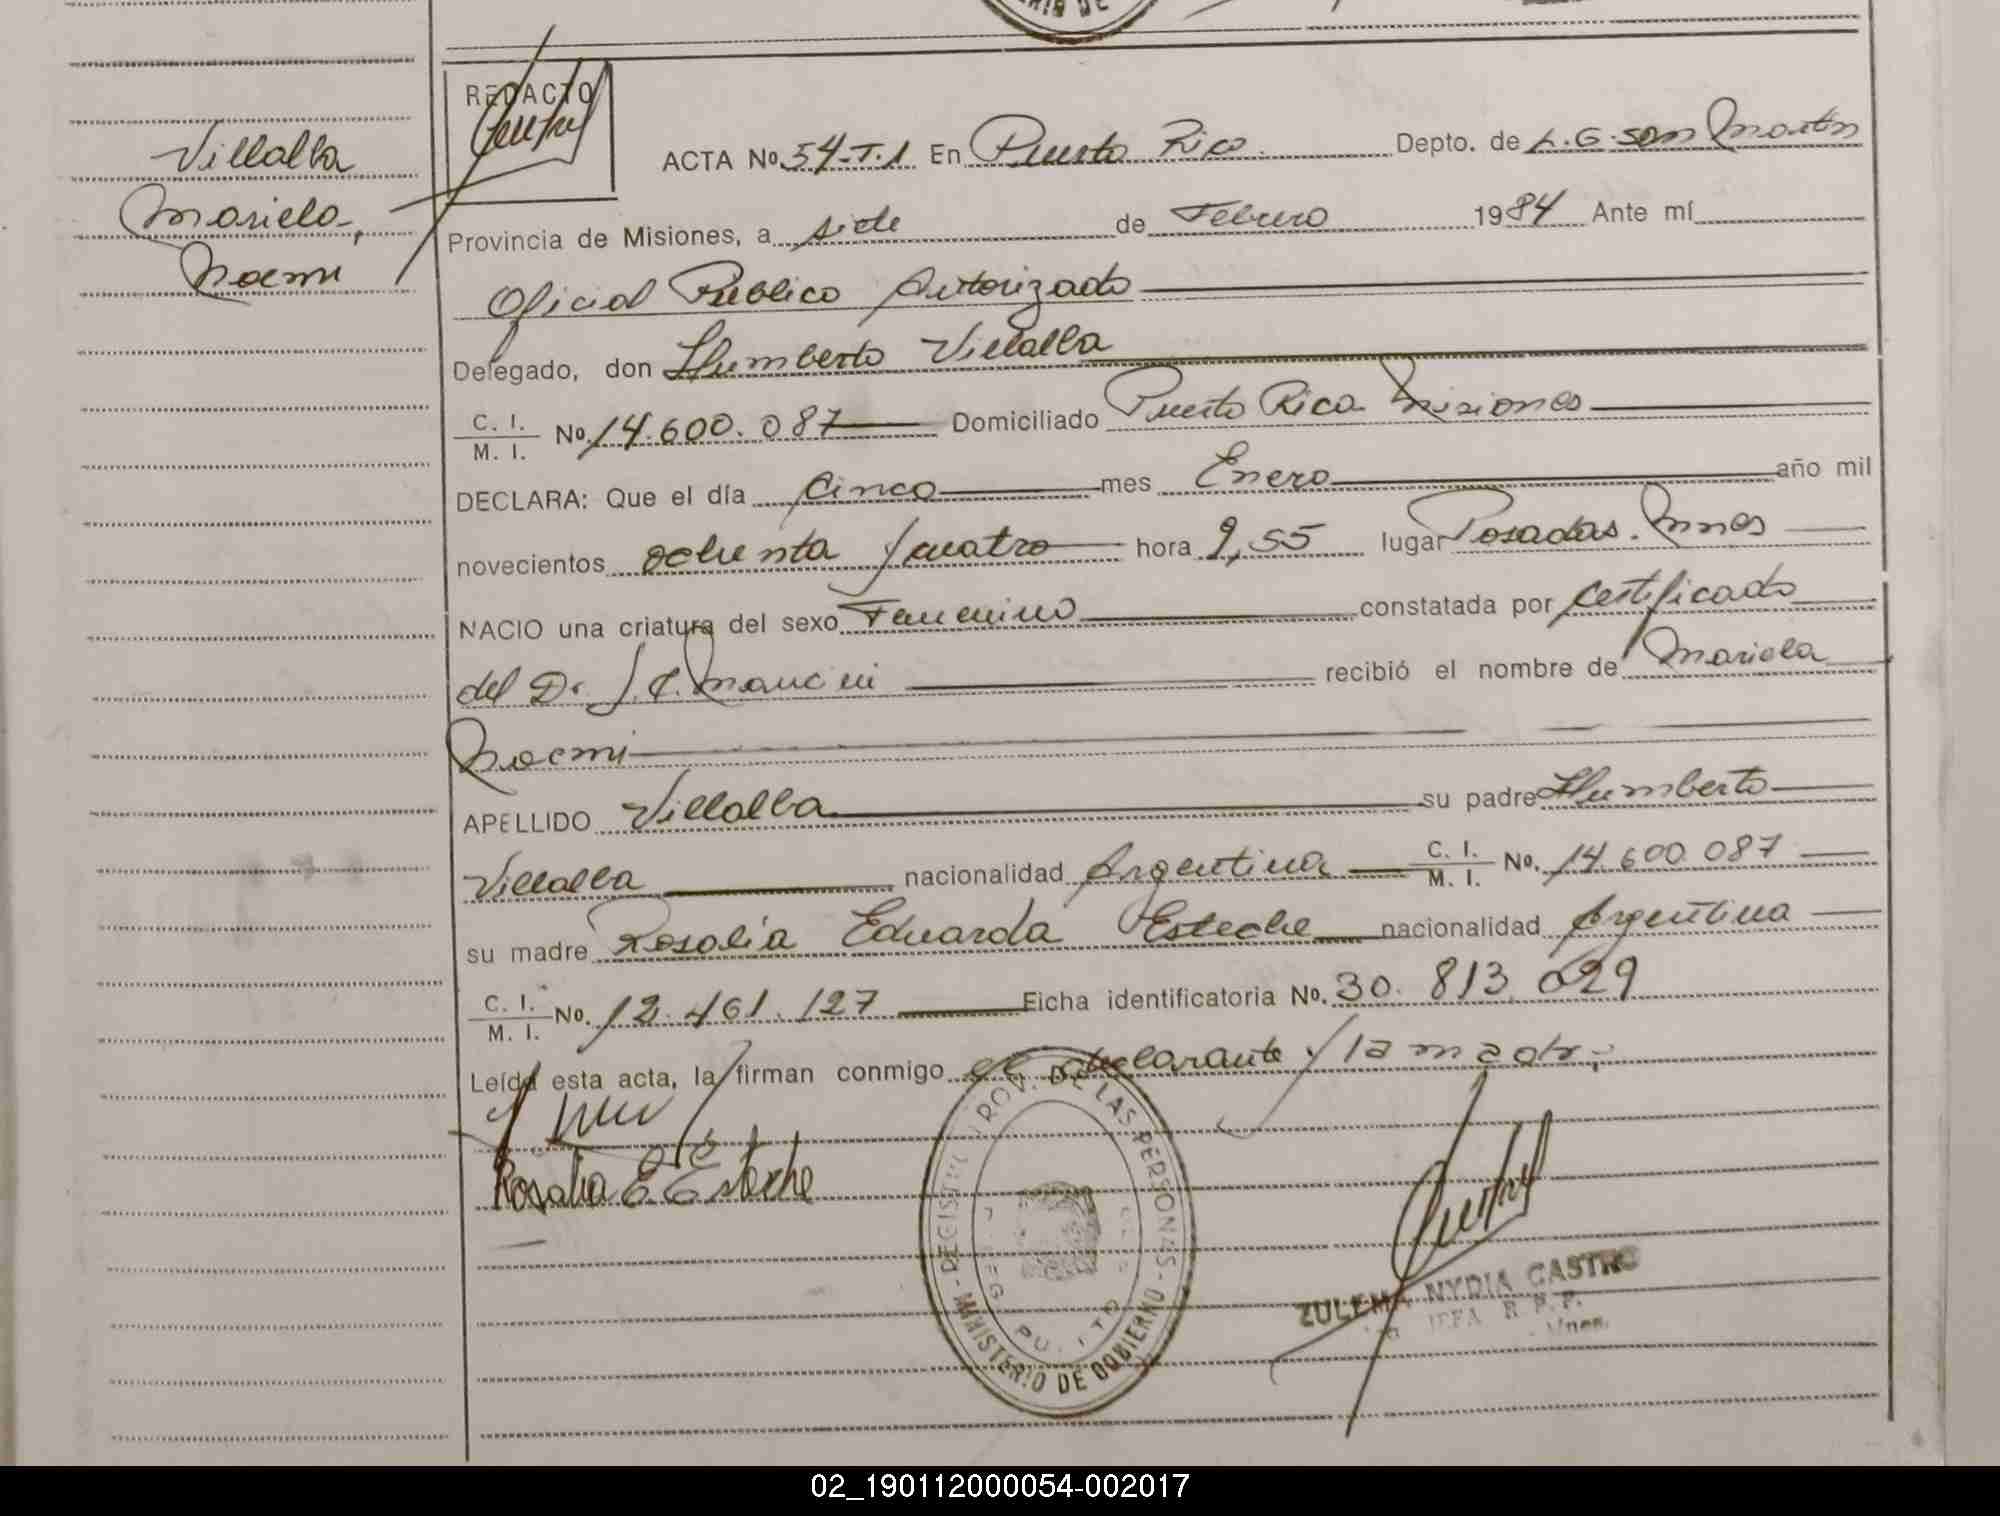 RIO DE
REDACTO
Villalba
Mariela,
Noemi
ACTA No. 54-T.1 En Puerto Rico Depto. de L.G. San Martin
Provincia de Misiones, a siete de Febrero 1984 Ante mí
Oficial Público Autorizado
Delegado, don Humberto Villalba
C. I. / M. I. No. 14.600.087 Domiciliado Puerto Rico Misiones
DECLARA: Que el día cinco mes Enero año mil
novecientos ochenta y cuatro hora 9,55 lugar Posadas. Mnes
NACIO una criatura del sexo Femenino constatada por certificado
del Dr. J.C. Mancini recibió el nombre de Mariela
Noemi
APELLIDO Villalba su padre Humberto
Villalba nacionalidad Argentina C. I. / M. I. No. 14.600.087
su madre Rosalía Eduarda Esteche nacionalidad Argentina
C. I. / M. I. No. 12.461.127 Ficha identificatoria No. 30.813.029
Leída esta acta, la firman conmigo el declarante y la madre
Rosalia E. Esteche
DE LAS PERSONAS
MINISTERIO DE GOBIERNO
ZULEMA NYDIA CASTRO
JEFA R. P. P.
Mnes.
02_190112000054-002017